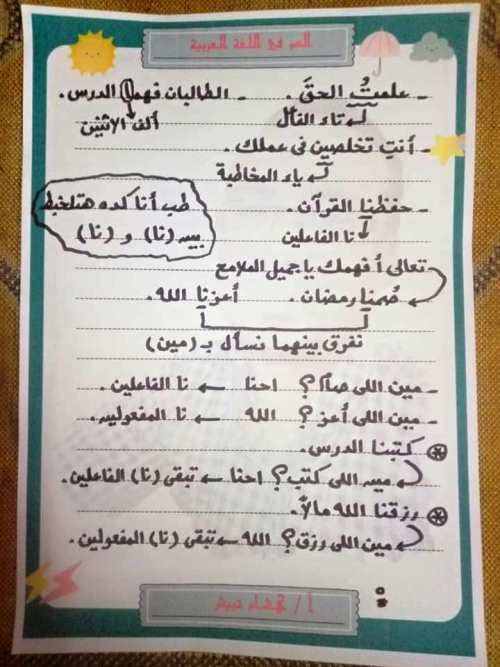 السر في اللغة العربية
- علمتُ الحقَ. - الطالبان فهما الدرس.
تاء الفاعل ألف الاثنين
- أنتِ تخلصين في عملك.
ياء المخاطبة
- حفظنا القرآن.
نا الفاعلين
طب أنا كده هتلخبط
بين (نا) و (نا)
تعالى أفهمك يا جميل الملامح
صُمنا رمضان. أعزنا الله.
نفرق بينهما نسأل بـ (مين)
- مين اللى صام؟ احنا ← نا الفاعلين.
- مين اللى أعز؟ الله ← نا المفعولين.
كتبنا الدرس.
مين اللى كتب؟ احنا ← تبقى (نا) الفاعلين.
رزقنا الله مالاً.
مين اللى رزق؟ الله ← تبقى (نا) المفعولين.
أ /